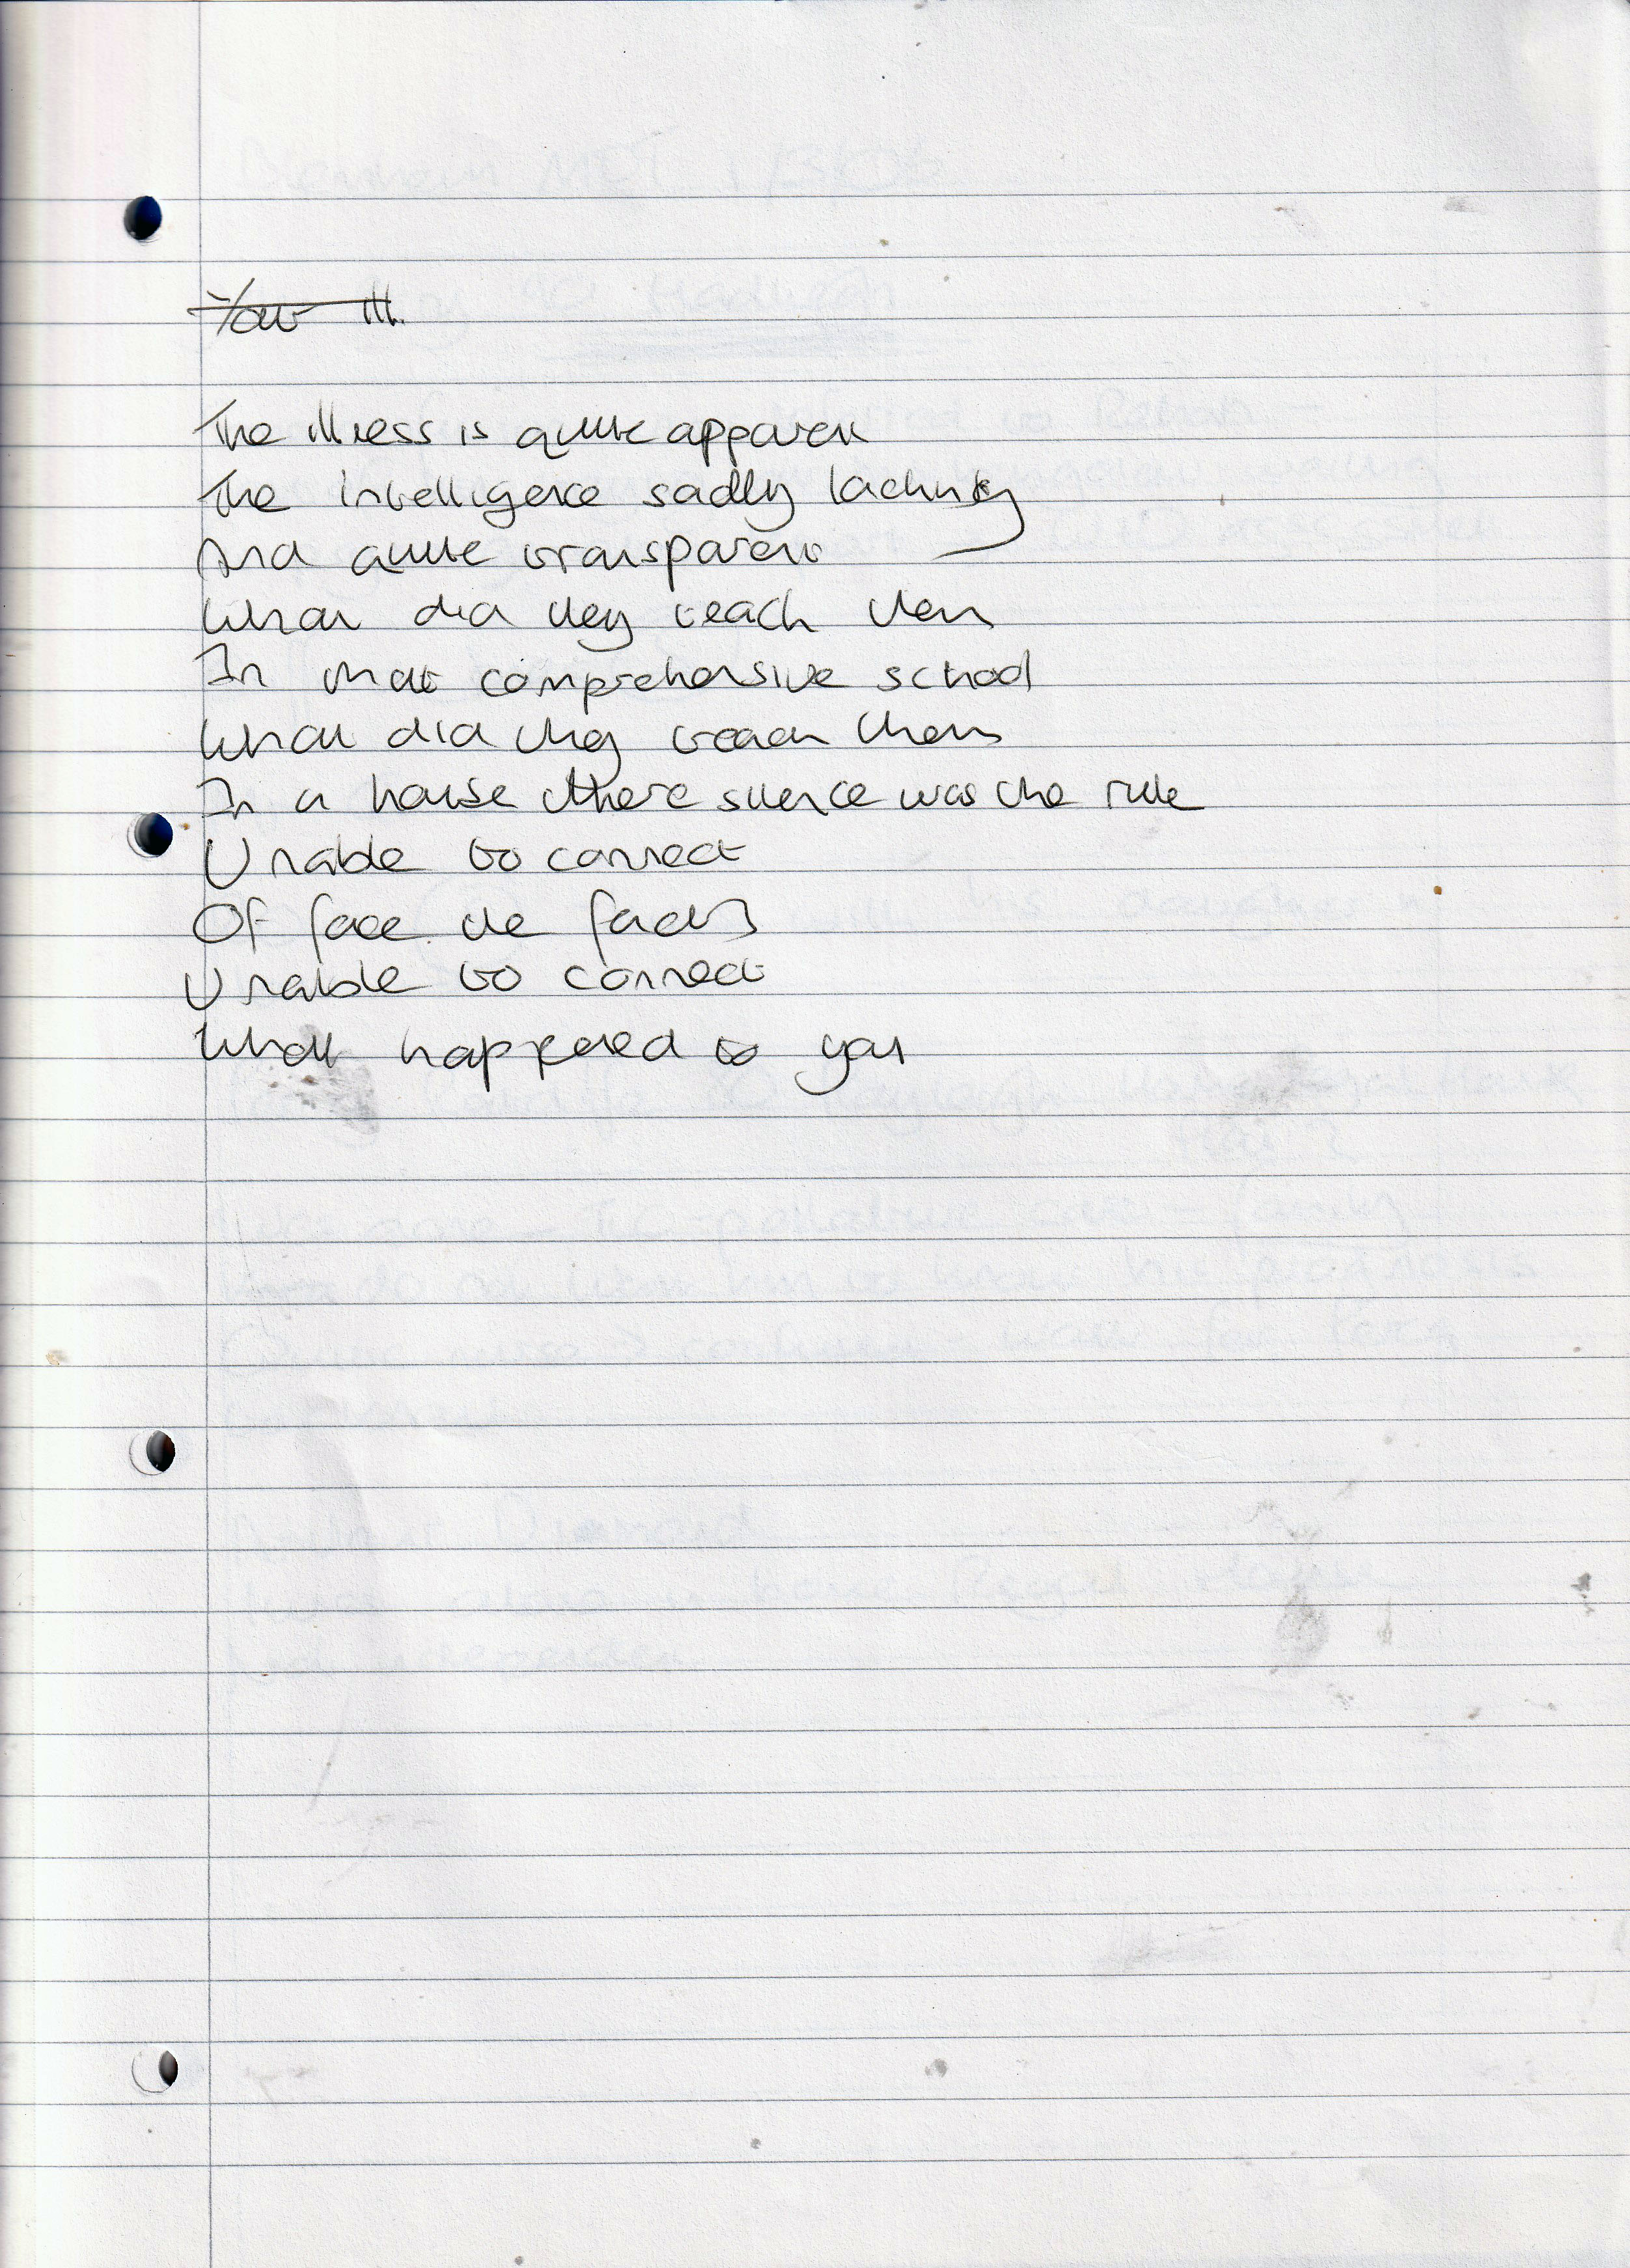 Your ill.
The illness is quite apparent
The intelligence sadly lacking
And quite transparent
What did they teach them
In that comprehensive school
What did they teach them
In a house there silence was the rule
Unable to connect
Of face the facts
Unable to connect
What happened to you